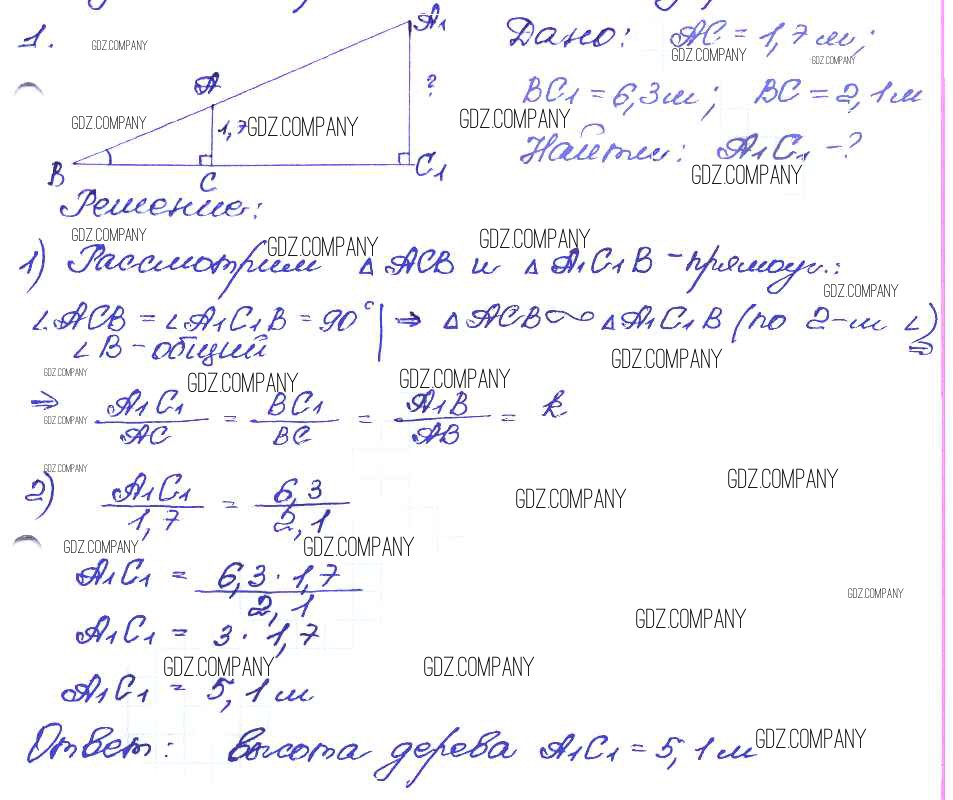 1. GDZ.COMPANY A A₁ Дано: AC = 1,7 м;
GDZ.COMPANY GDZ.COMPANY
? BC₁ = 6,3 м; BC = 2,1 м
GDZ.COMPANY 1,7 GDZ.COMPANY GDZ.COMPANY
Найти: A₁C₁ - ?
B C C₁ GDZ.COMPANY
Решение:
GDZ.COMPANY GDZ.COMPANY GDZ.COMPANY
1) Рассмотрим △ ACB и △ A₁C₁B - прямоуг.:
GDZ.COMPANY
∠ACB = ∠A₁C₁B = 90° | ⇒ △ ACB ∾ △A₁C₁B (по 2-м ∠) ⇒
∠ B - общий
GDZ.COMPANY
GDZ.COMPANY GDZ.COMPANY GDZ.COMPANY
⇒ A₁C₁/AC = BC₁/BC = A₁B/AB = k
GDZ.COMPANY
GDZ.COMPANY GDZ.COMPANY
2) A₁C₁/1,7 = 6,3/2,1
GDZ.COMPANY
GDZ.COMPANY GDZ.COMPANY
A₁C₁ = 6,3 · 1,7/2,1
GDZ.COMPANY
GDZ.COMPANY
A₁C₁ = 3 · 1,7
GDZ.COMPANY GDZ.COMPANY
A₁C₁ = 5,1 м
Ответ: высота дерева A₁C₁ = 5,1 м GDZ.COMPANY